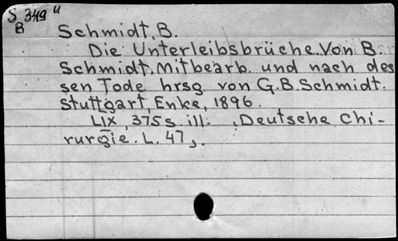 S 349 u
B
Schmidt, B.
Die Unterleibsbrüche. Von B.
Schmidt. Mitbearb. und nach des
sen Tode hrsg von G. B. Schmidt.
Stuttgart, Enke, 1896.
LIX, 375 s. ill. (Deutsche Chi-
rurgie. L. 47).